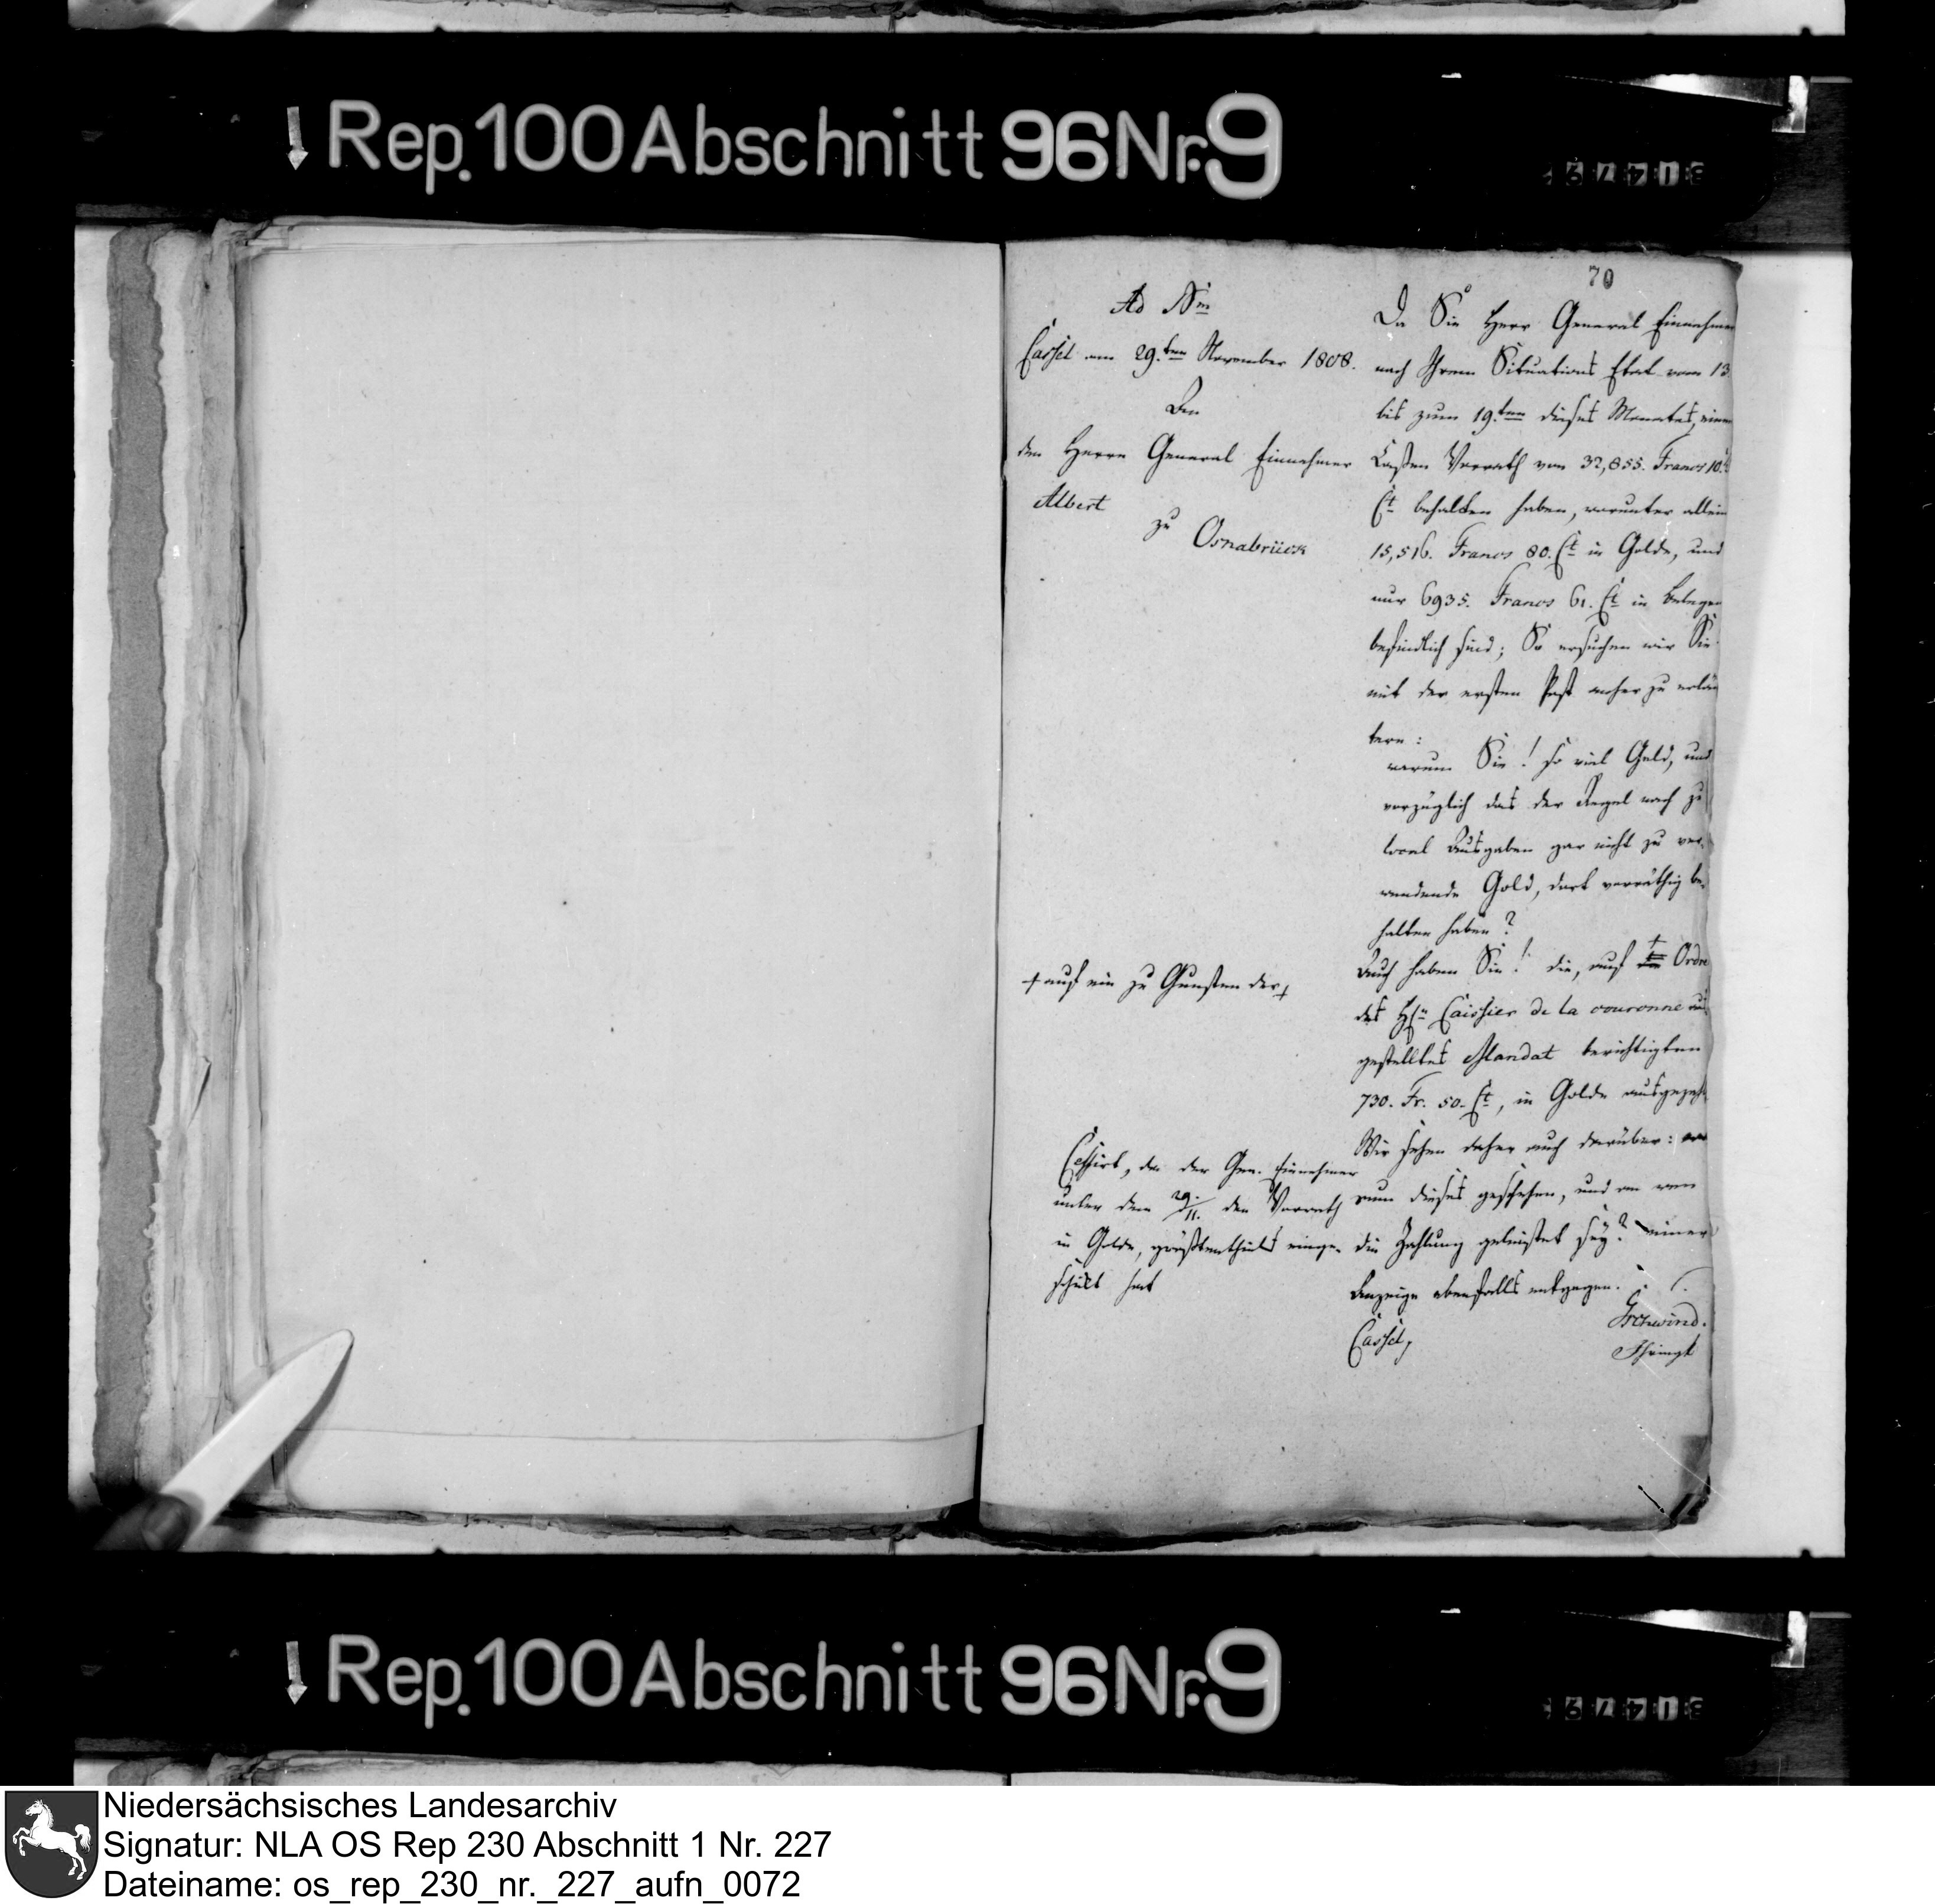 Rep. 100 Abschnitt 96 Nr. 9
70
Ad Nm
Cassel am 29.ten November 1808.
Den
den Herrn General Einnehmer
Albert
zu Osnabrück
Da Sie Herr General Einnehmer
nach Ihrem Situations Etat vom 13
bis zum 19.ten dieses Monates, einen
Cassen Vorrath von 32,855. Francs 10.
Ct behalten haben, worunter allein
15,516. Francs 80. Ct in Golde, und
nur 6935. Francs 61. Ct in Belegen
befindlich sind; So ersuchen wir Sie
mit der ersten Post anher zu erläu
tern:
warum Sie! so viel Geld, und
vorzüglich das der Regel nach zu
local Ausgaben gar nicht zu ver-
wendende Gold, dort vorräthig be-
halten haben?
Auch haben Sie! die, auf + Ordre
+ auf ein zu Gunsten der +
des Hℓn Caissier de la couronne aus
gestelltes Mandat berichtigten
730. Fr. 50. Ct, in Golde ausgezahlt
Wir sehen daher auch darüber: wa
rum dieses geschehen, und an wen
die Zahlung geleistet sey? einer
Anzeige ebenfalls entgegen.
Cassel,
Cessirt, da der Gen. Einnehmer
unter dem 29./11. den Vorrath
in Golde, größtentheils einge-
schickt hat
Rep. 100 Abschnitt 96 Nr. 9
Niedersächsisches Landesarchiv
Signatur: NLA OS Rep 230 Abschnitt 1 Nr. 227
Dateiname: os_rep_230_nr._227_aufn_0072